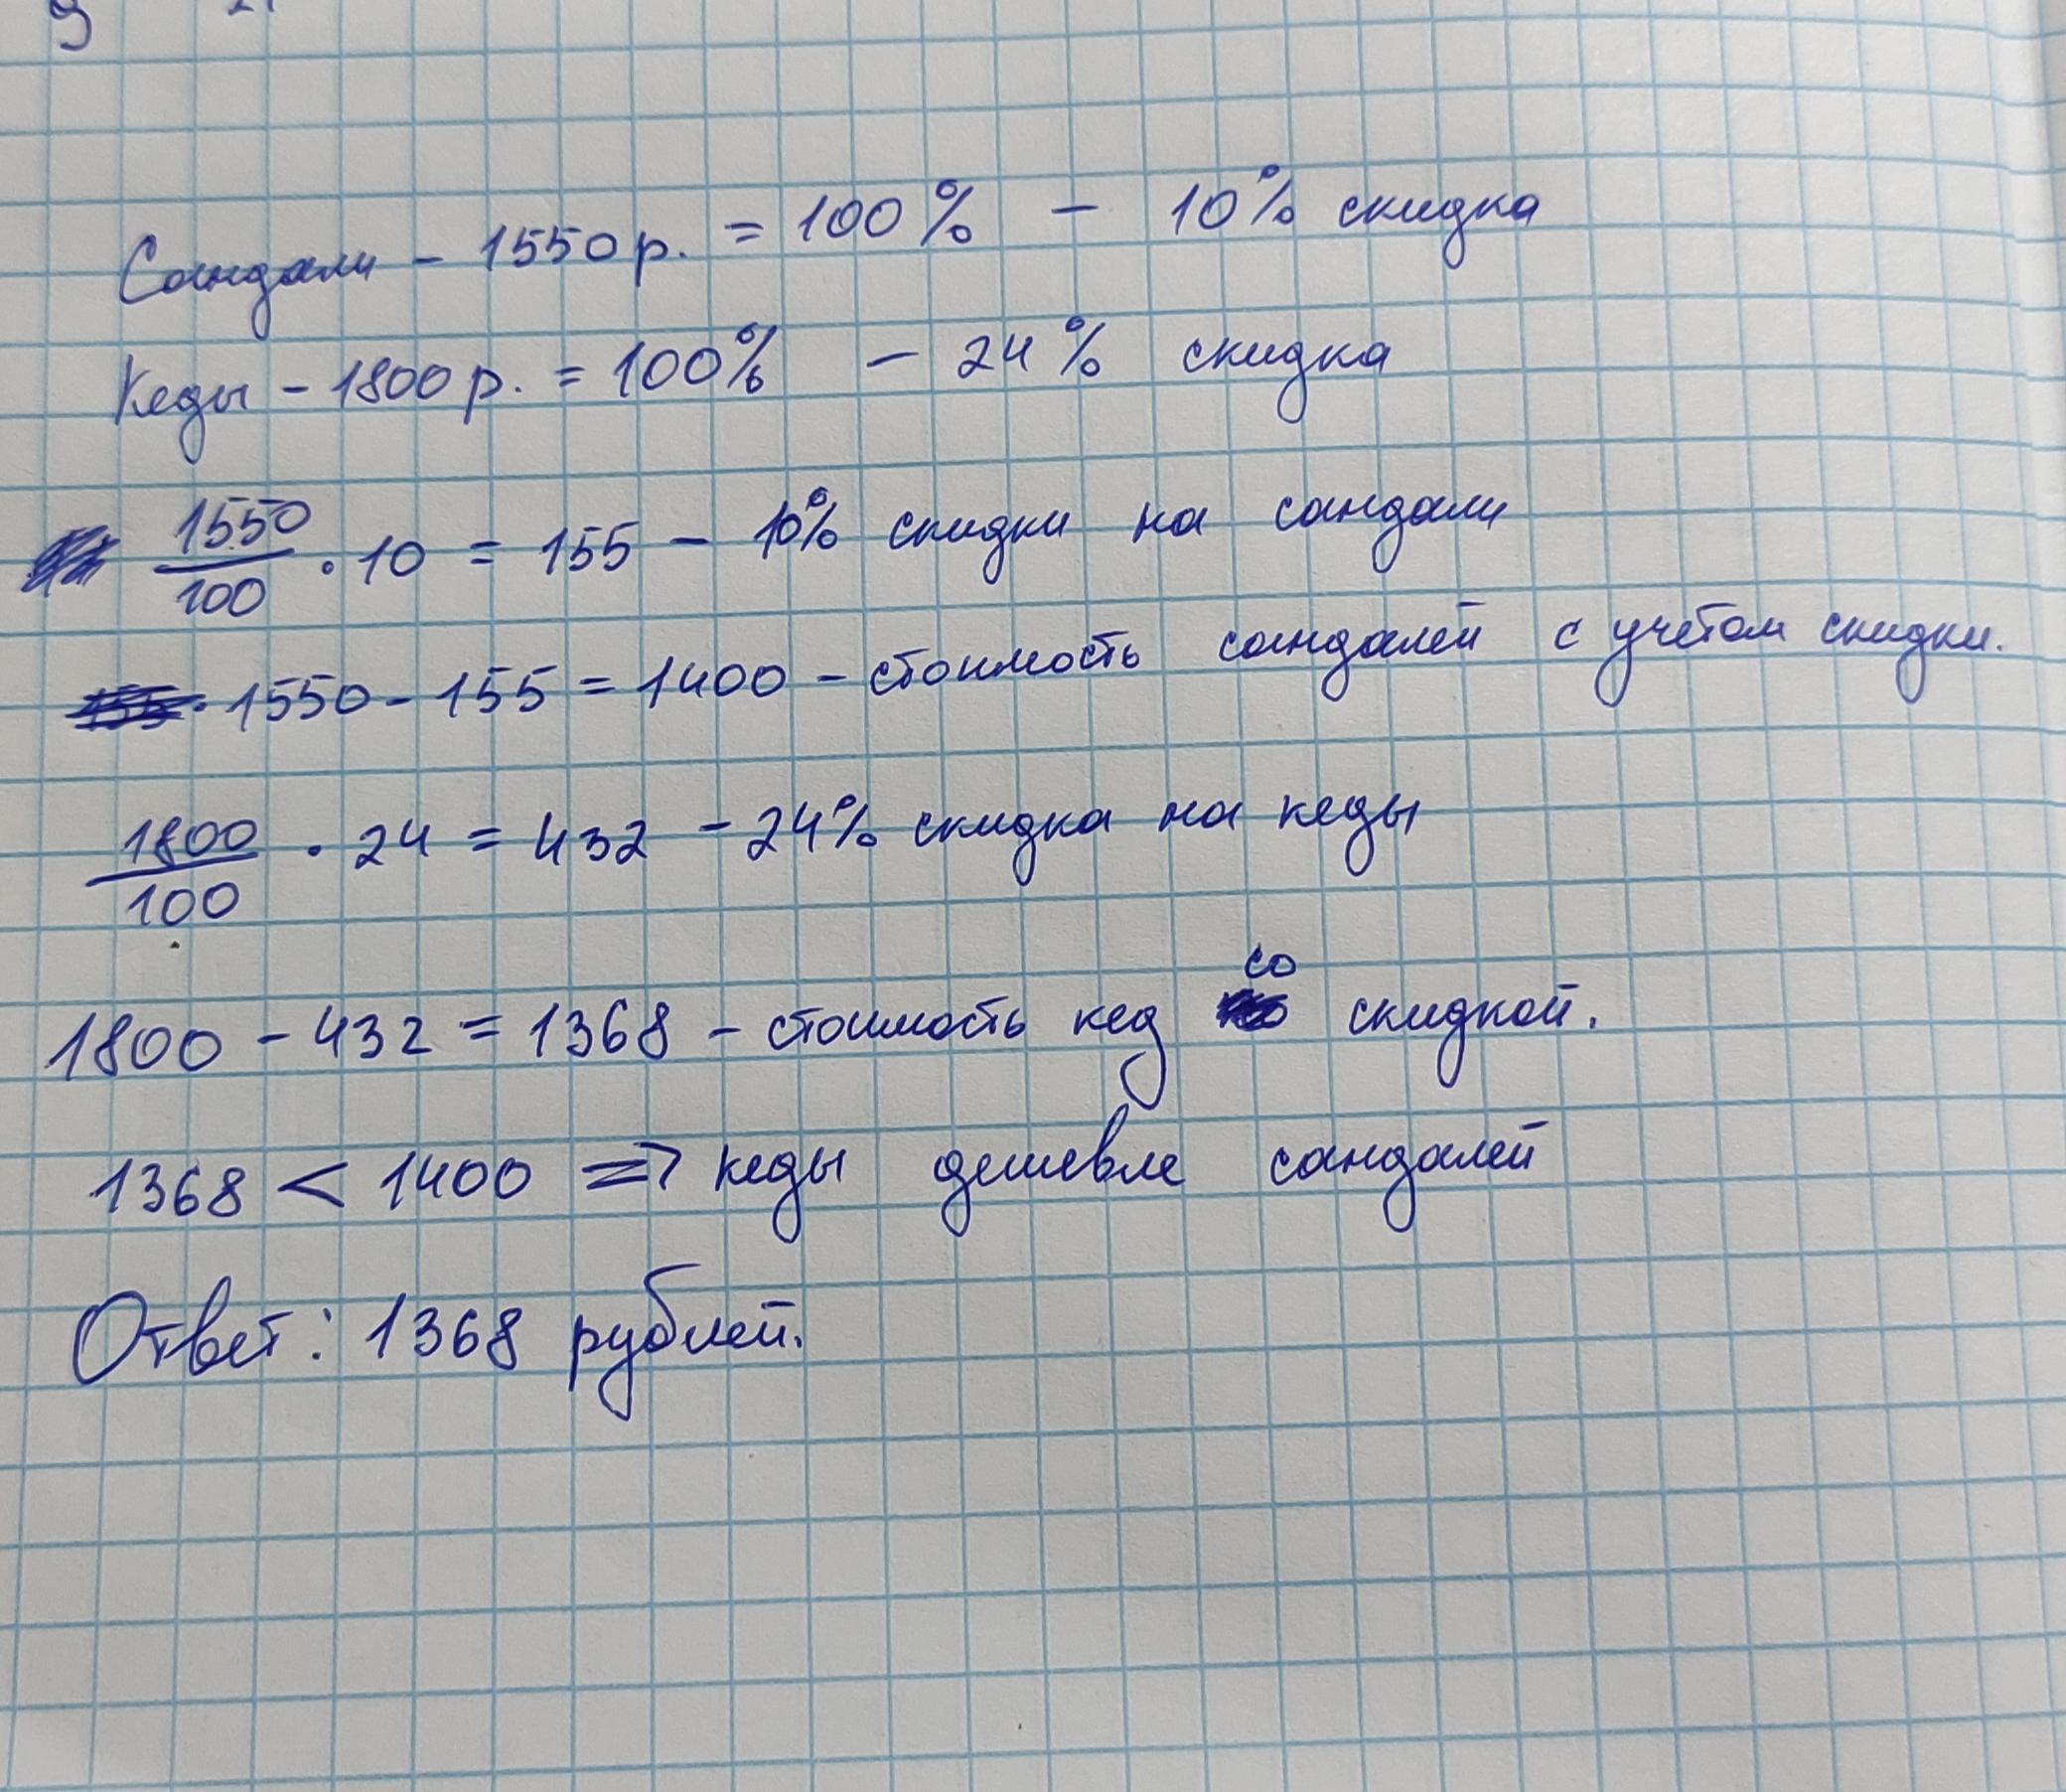 Сандали - 1550 р. = 100% - 10% скидка
Кеды - 1800 р. = 100% - 24% скидка
1550/100 · 10 = 155 - 10% скидки на сандали
1550 - 155 = 1400 - стоимость сандалей с учетом скидки.
1800/100 · 24 = 432 - 24% скидка на кеды
1800 - 432 = 1368 - стоимость кед со скидкой.
1368 < 1400 => кеды дешевле сандалей
Ответ: 1368 рублей.